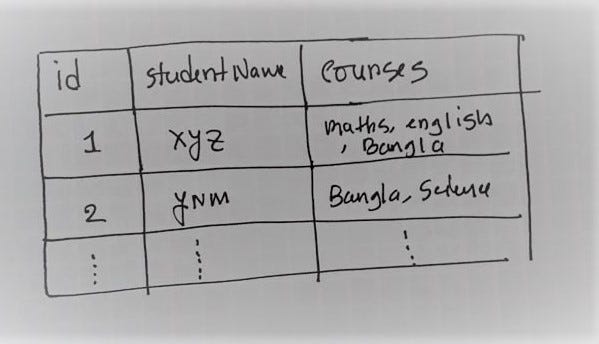 id studentName Courses
1 xyz maths, english
, Bangla
2 yNM Bangla, Science